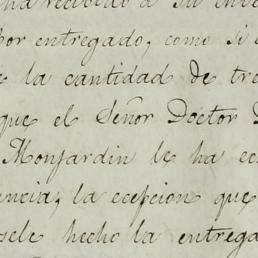 ha recibido a su
por entregado, como si
la cantidad de
que el Señor Doctor
Monjardin le ha
encia; la ecepcion que
sele hecho la entrega